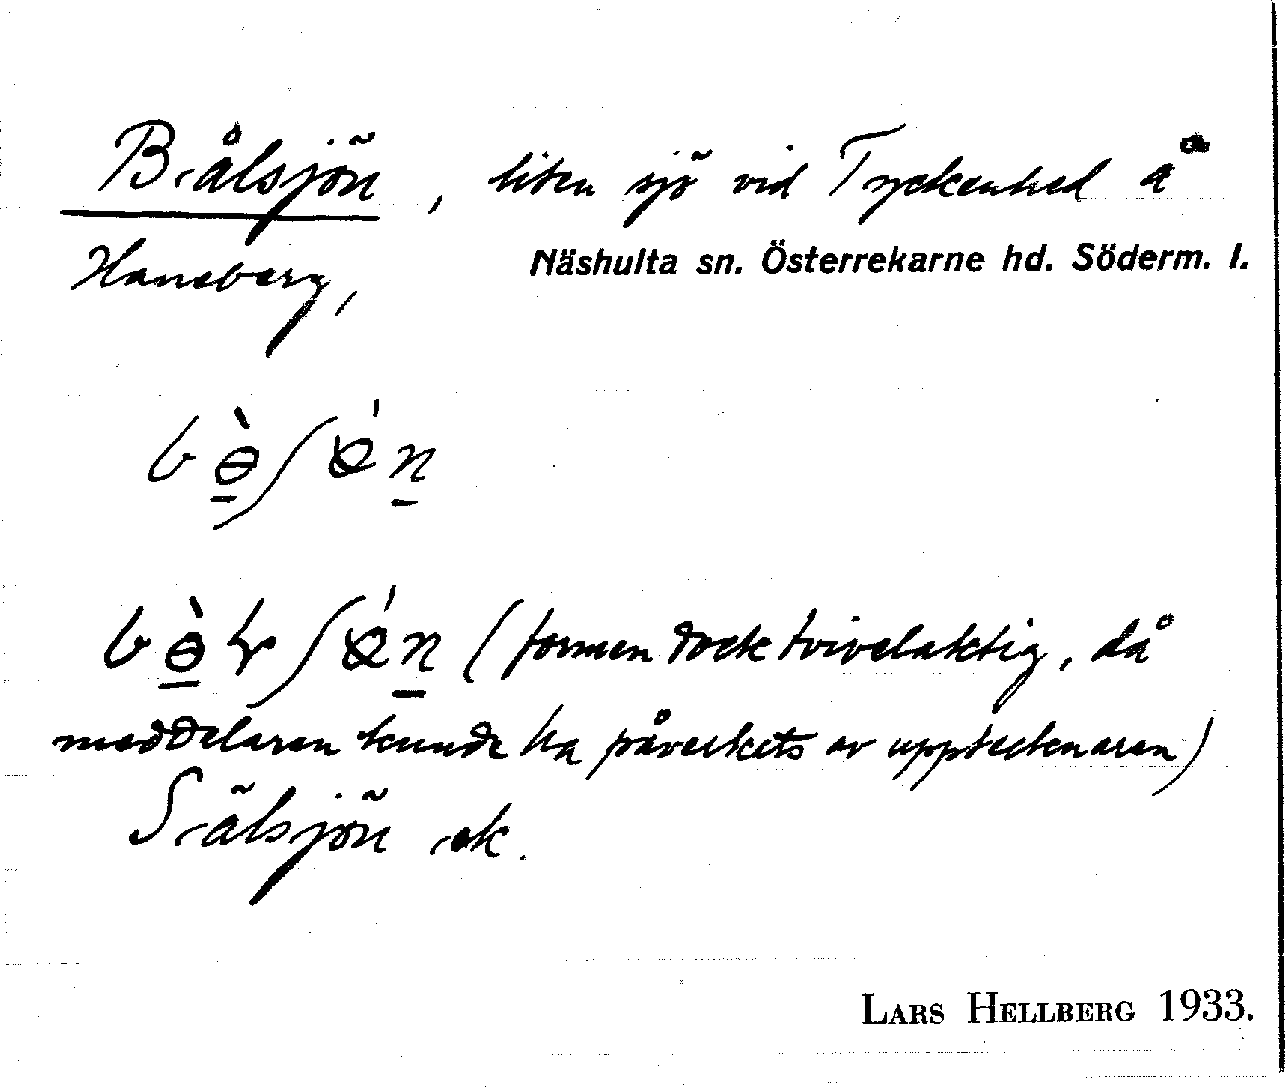 Bålsjön, liten sjö vid Tyckenhed å
Haneberg, Näshulta sn. Österrekarne hd. Söderm. l.
(formen dock tvivelaktig, då
meddelaren kunde ha påverkats av upptecknaren)
Sjön ek.
LARS HELLBERG 1933.